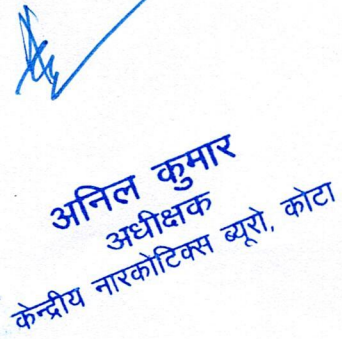 अनिल कुमार
अधीक्षक
केन्द्रीय नारकोटिक्स ब्यूरो, कोटा